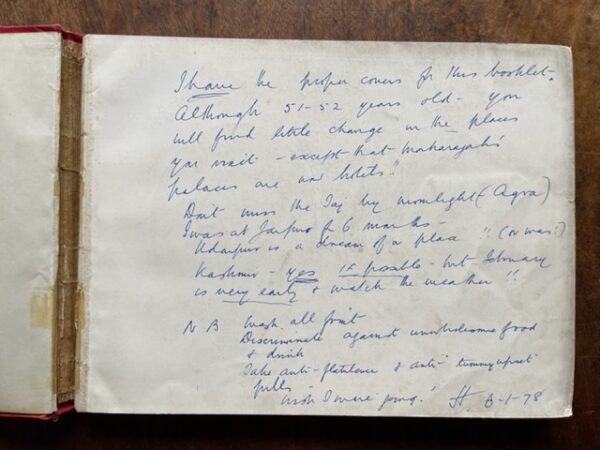 I have the proper covers for this booklet.
Although 51-52 years old - you
will find little change in the places
you visit - except that maharajah's
palaces are now hotels!!
Don't miss the Taj by moonlight (Agra)
I was at Jaipur for 6 months -
Udaipur is a dream of a place!! (or was?)
Kashmir - yes if possible - but February
is very early & watch the weather!!
N B Wash all fruit
Discriminate against unwholesome food
& drink
Take anti-flatulence & anti-tummy upset
pills -
Wish I were going! H. 3-1-78